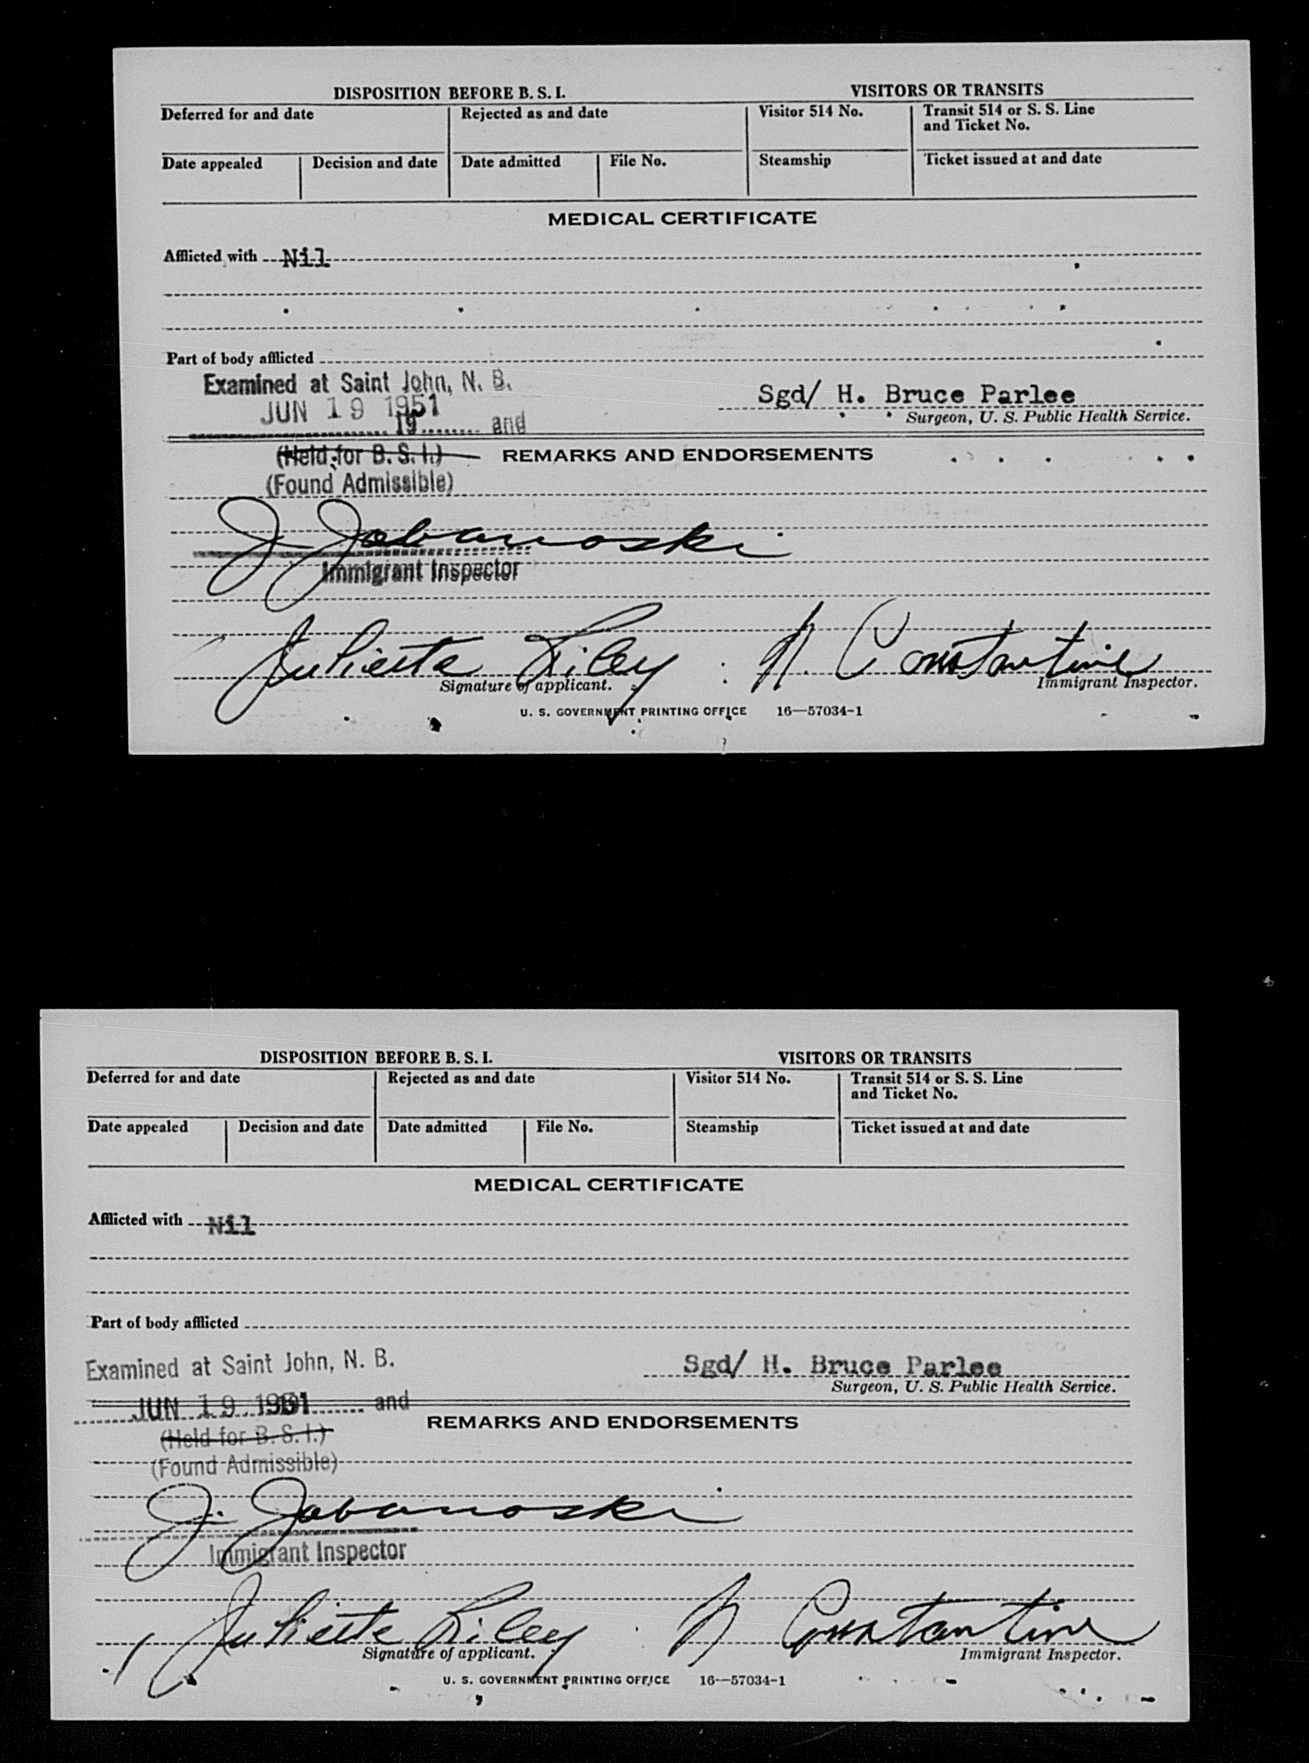 DISPOSITION BEFORE B. S. I. VISITORS OR TRANSITS
Deferred for and date Rejected as and date Visitor 514 No. Transit 514 or S. S. Line
and Ticket No.
Date appealed Decision and date Date admitted File No. Steamship Ticket issued at and date
MEDICAL CERTIFICATE
Afflicted with Nil
Part of body afflicted
Examined at Saint John, N. B.
JUN 19 1951 Sgd/ H. Bruce Parlee
19 and Surgeon, U. S. Public Health Service.
(Held for B. S. I.) REMARKS AND ENDORSEMENTS
(Found Admissible)
J. Jabanoski
Immigrant Inspector
Juliette Riley N. Constantine
Signature of applicant. Immigrant Inspector.
U. S. GOVERNMENT PRINTING OFFICE 16—57034-1
DISPOSITION BEFORE B. S. I. VISITORS OR TRANSITS
Deferred for and date Rejected as and date Visitor 514 No. Transit 514 or S. S. Line
and Ticket No.
Date appealed Decision and date Date admitted File No. Steamship Ticket issued at and date
MEDICAL CERTIFICATE
Afflicted with Nil
Part of body afflicted
Examined at Saint John, N. B. Sgd/ H. Bruce Parlee
Surgeon, U. S. Public Health Service.
JUN 19 1951 and
(Held for B. S. I.) REMARKS AND ENDORSEMENTS
(Found Admissible)
J. Jabanoski
Immigrant Inspector
Juliette Riley N Constantine
Signature of applicant. Immigrant Inspector.
U. S. GOVERNMENT PRINTING OFFICE 16—57034-1